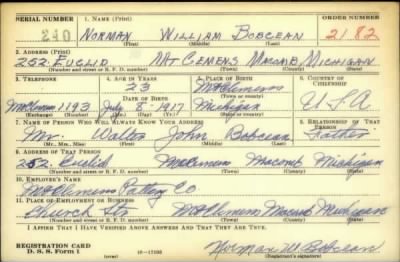 SERIAL NUMBER 1. NAME (Print) ORDER NUMBER
240 NORMAN WILLIAM BOBCEAN 2182
(First) (Middle) (Last)
2. ADDRESS (Print)
252 EUCLID MT CLEMENS MACOMB MICHIGAN
(Number and street or R. F. D. number) (Town) (County) (State)
3. TELEPHONE 4. AGE IN YEARS 5. PLACE OF BIRTH 6. COUNTRY OF CITIZENSHIP
23 Mt Clemens
(Town or county)
DATE OF BIRTH
Mt Clemens 1193 July 8 1917 Michigan U.S.A
(Exchange) (Number) (Mo.) (Day) (Yr.) (State or country)
7. NAME OF PERSON WHO WILL ALWAYS KNOW YOUR ADDRESS 8. RELATIONSHIP OF THAT PERSON
Mr. Walter John Bobcean Father
(Mr., Mrs., Miss) (First) (Middle) (Last)
9. ADDRESS OF THAT PERSON
252 Euclid Mt Clemens Macomb Michigan
(Number and street or R. F. D. number) (Town) (County) (State)
10. EMPLOYER'S NAME
Mt Clemens Pottery Co
11. PLACE OF EMPLOYMENT OR BUSINESS
Church St Mt Clemens Macomb Michigan
(Number and street or R. F. D. number) (Town) (County) (State)
I AFFIRM THAT I HAVE VERIFIED ABOVE ANSWERS AND THAT THEY ARE TRUE.
REGISTRATION CARD
D. S. S. Form 1 (over) Norman W Bobcean
(Registrant's signature)